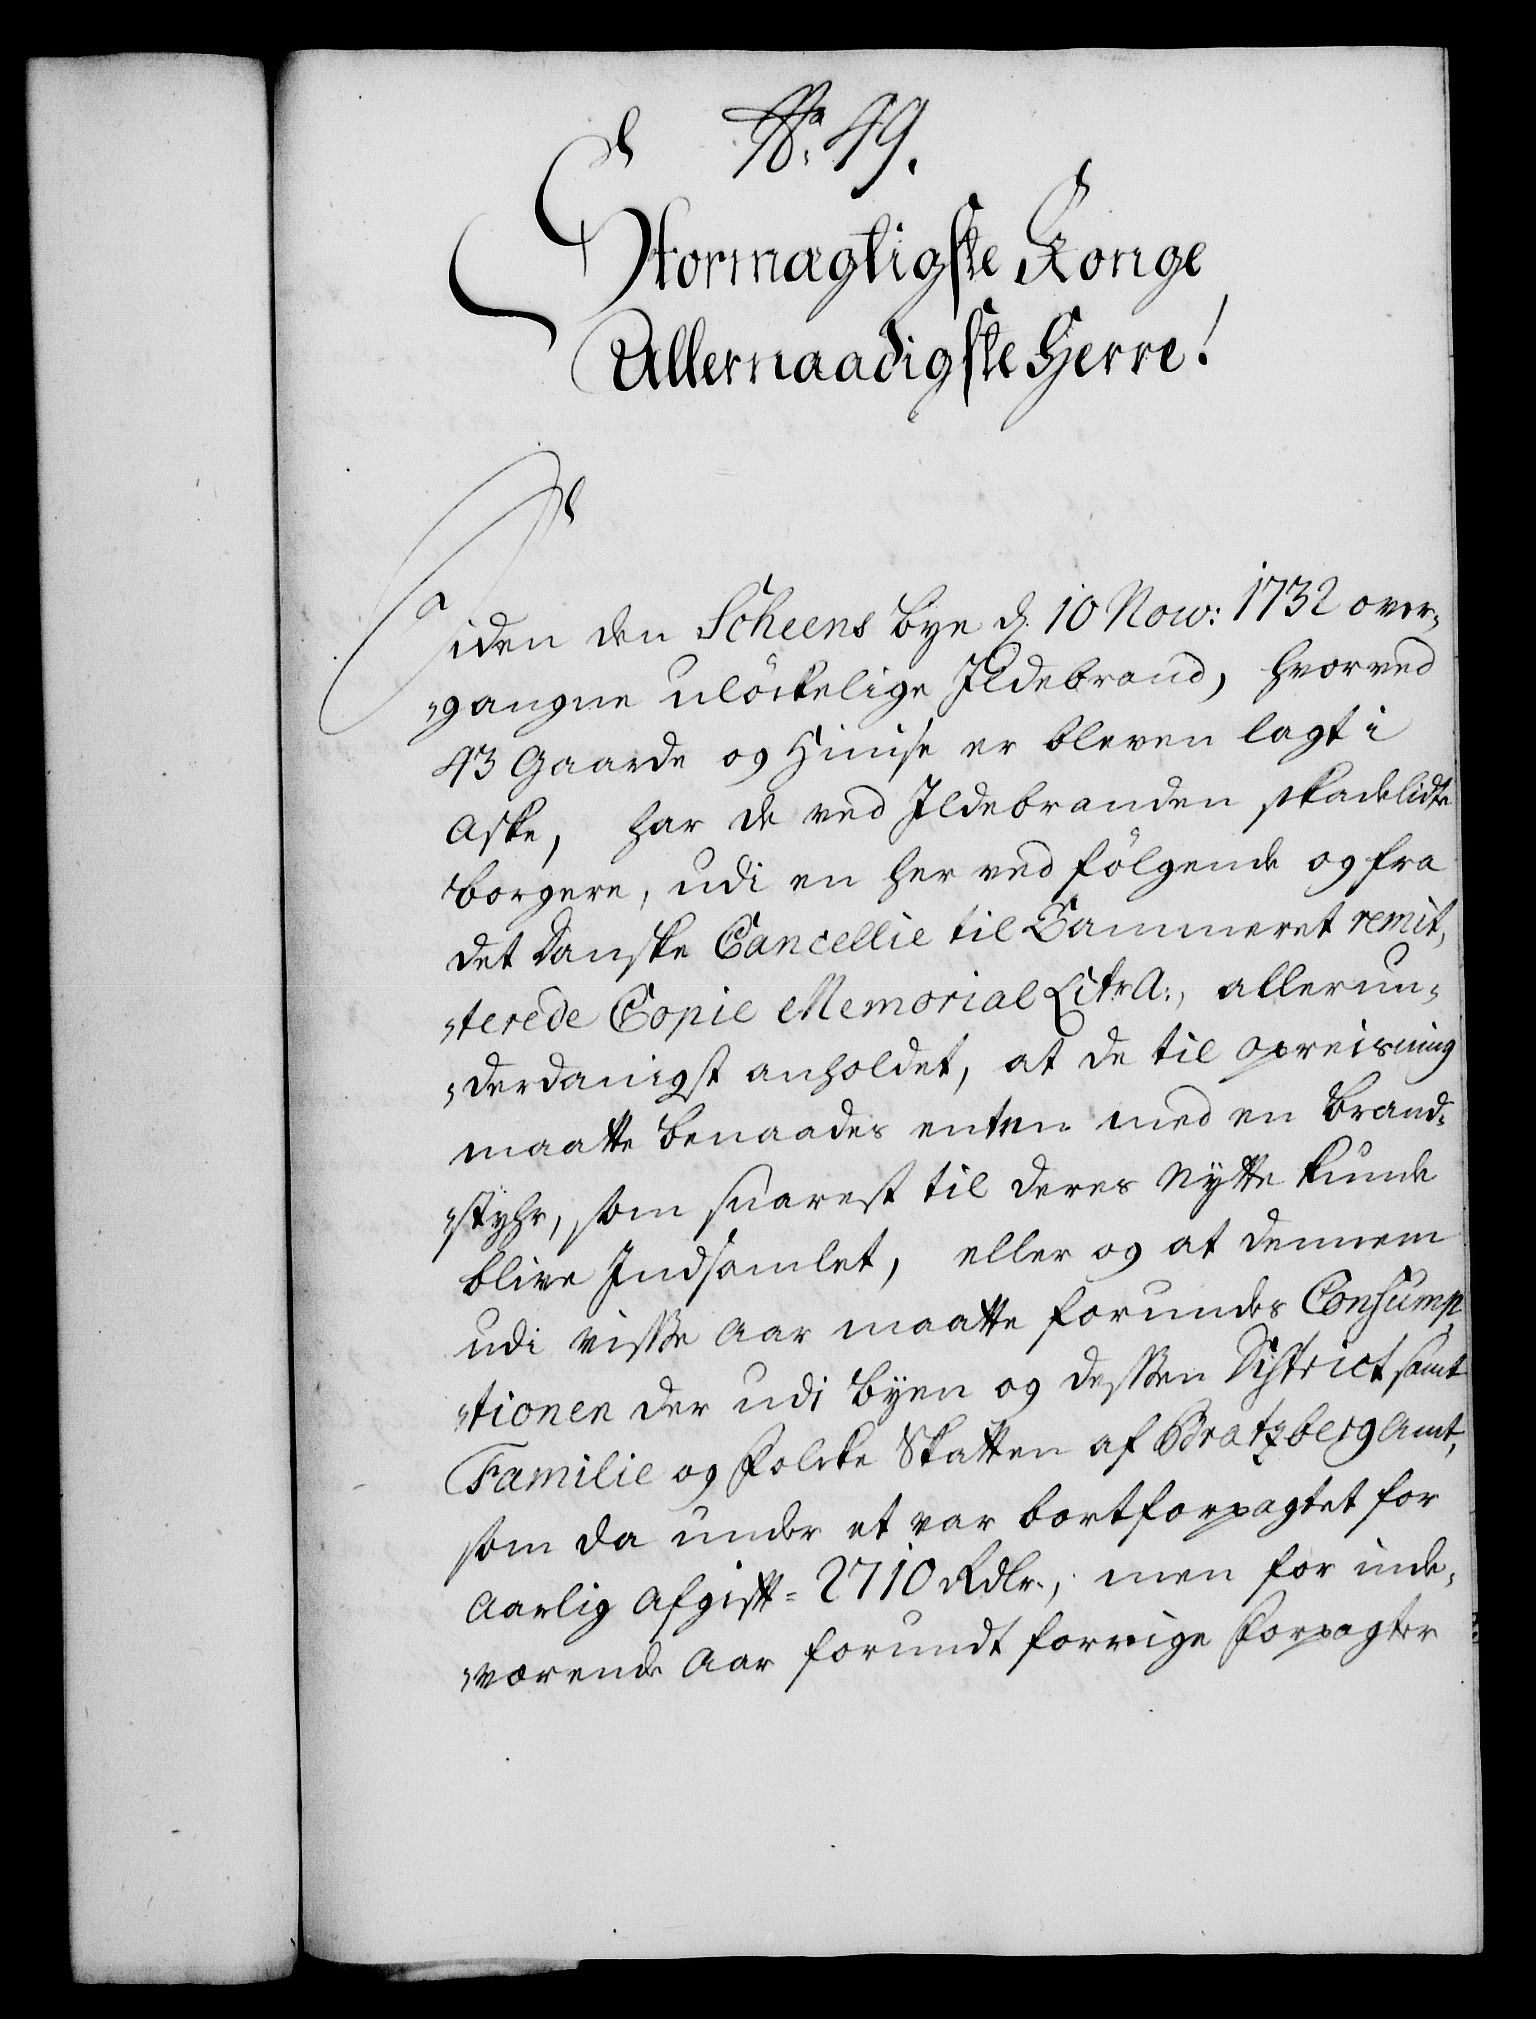 No. 49.
Stormægtigste Konge
Allernaadigste Herre!
Siden den Scheens Bye d. 10 Nov: 1732 over„
„gangne ulöckelige Ildebrand, hvorved
43 Gaarde og Huuse er bleven lagt i
Aske, har de ved Ildebranden skadelidte
borgere, udi en her ved fölgende og fra
det Danske Cancellie til Cammeret remit„
„terede Copie Memorial Litr A:, allerun„
„derdanigst anholdet, at de til opreisning
maatte benaades enten med en Brand„
„styhr, som snarest til deres Nytte kunde
blive Indsamlet, eller og at dennem
udi visse Aar maatte forundes Consump„
„tionen der udi Byen og dessen District samt
Familie og Folcke Skatten af Bratzberg Amt,
som da under et var bortforpagtet for
Aarlig Afgift = 2710 Rdlr., men for inde„
„værende Aar forundt forrige Forpagter